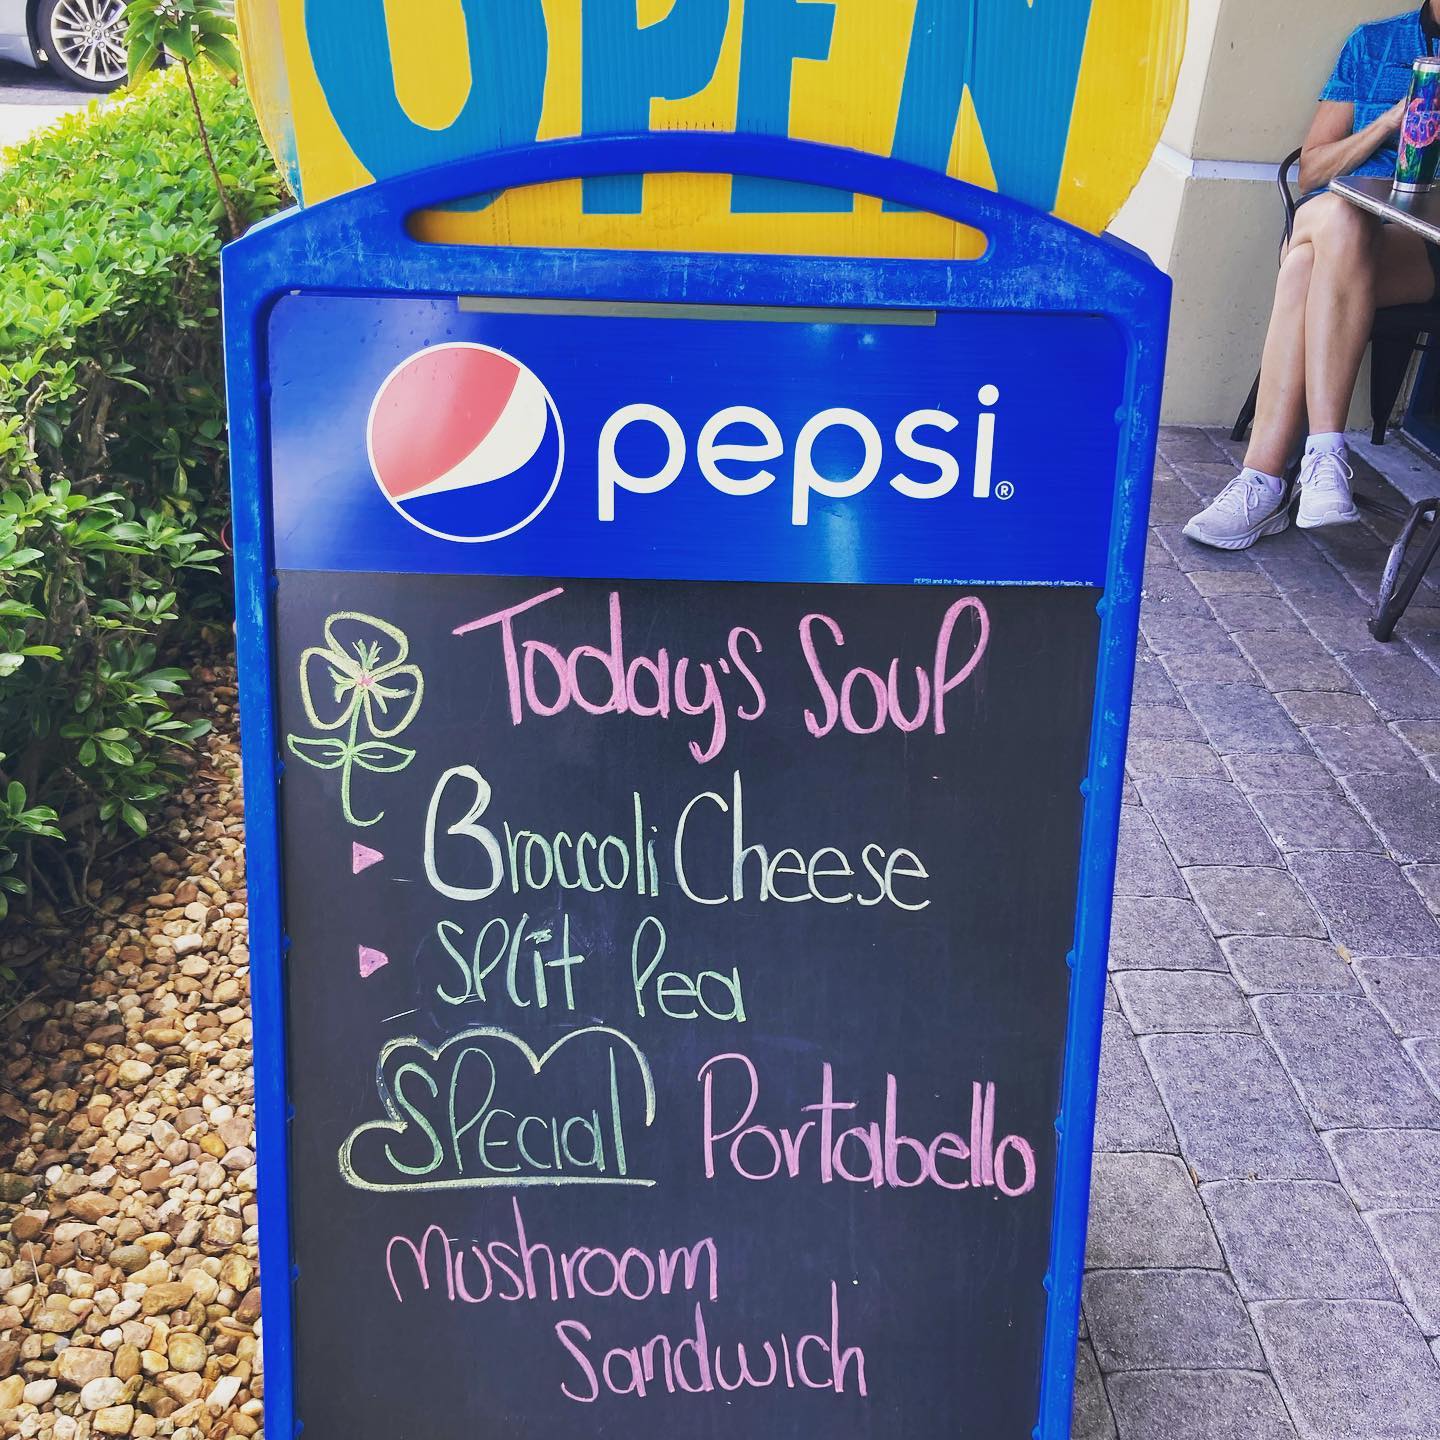 OPEN
pepsi®
PEPSI and the Pepsi Globe are registered trademarks of PepsiCo, Inc.
Today's Soup
Broccoli Cheese
Split Pea
Special Portabello
Mushroom
Sandwich